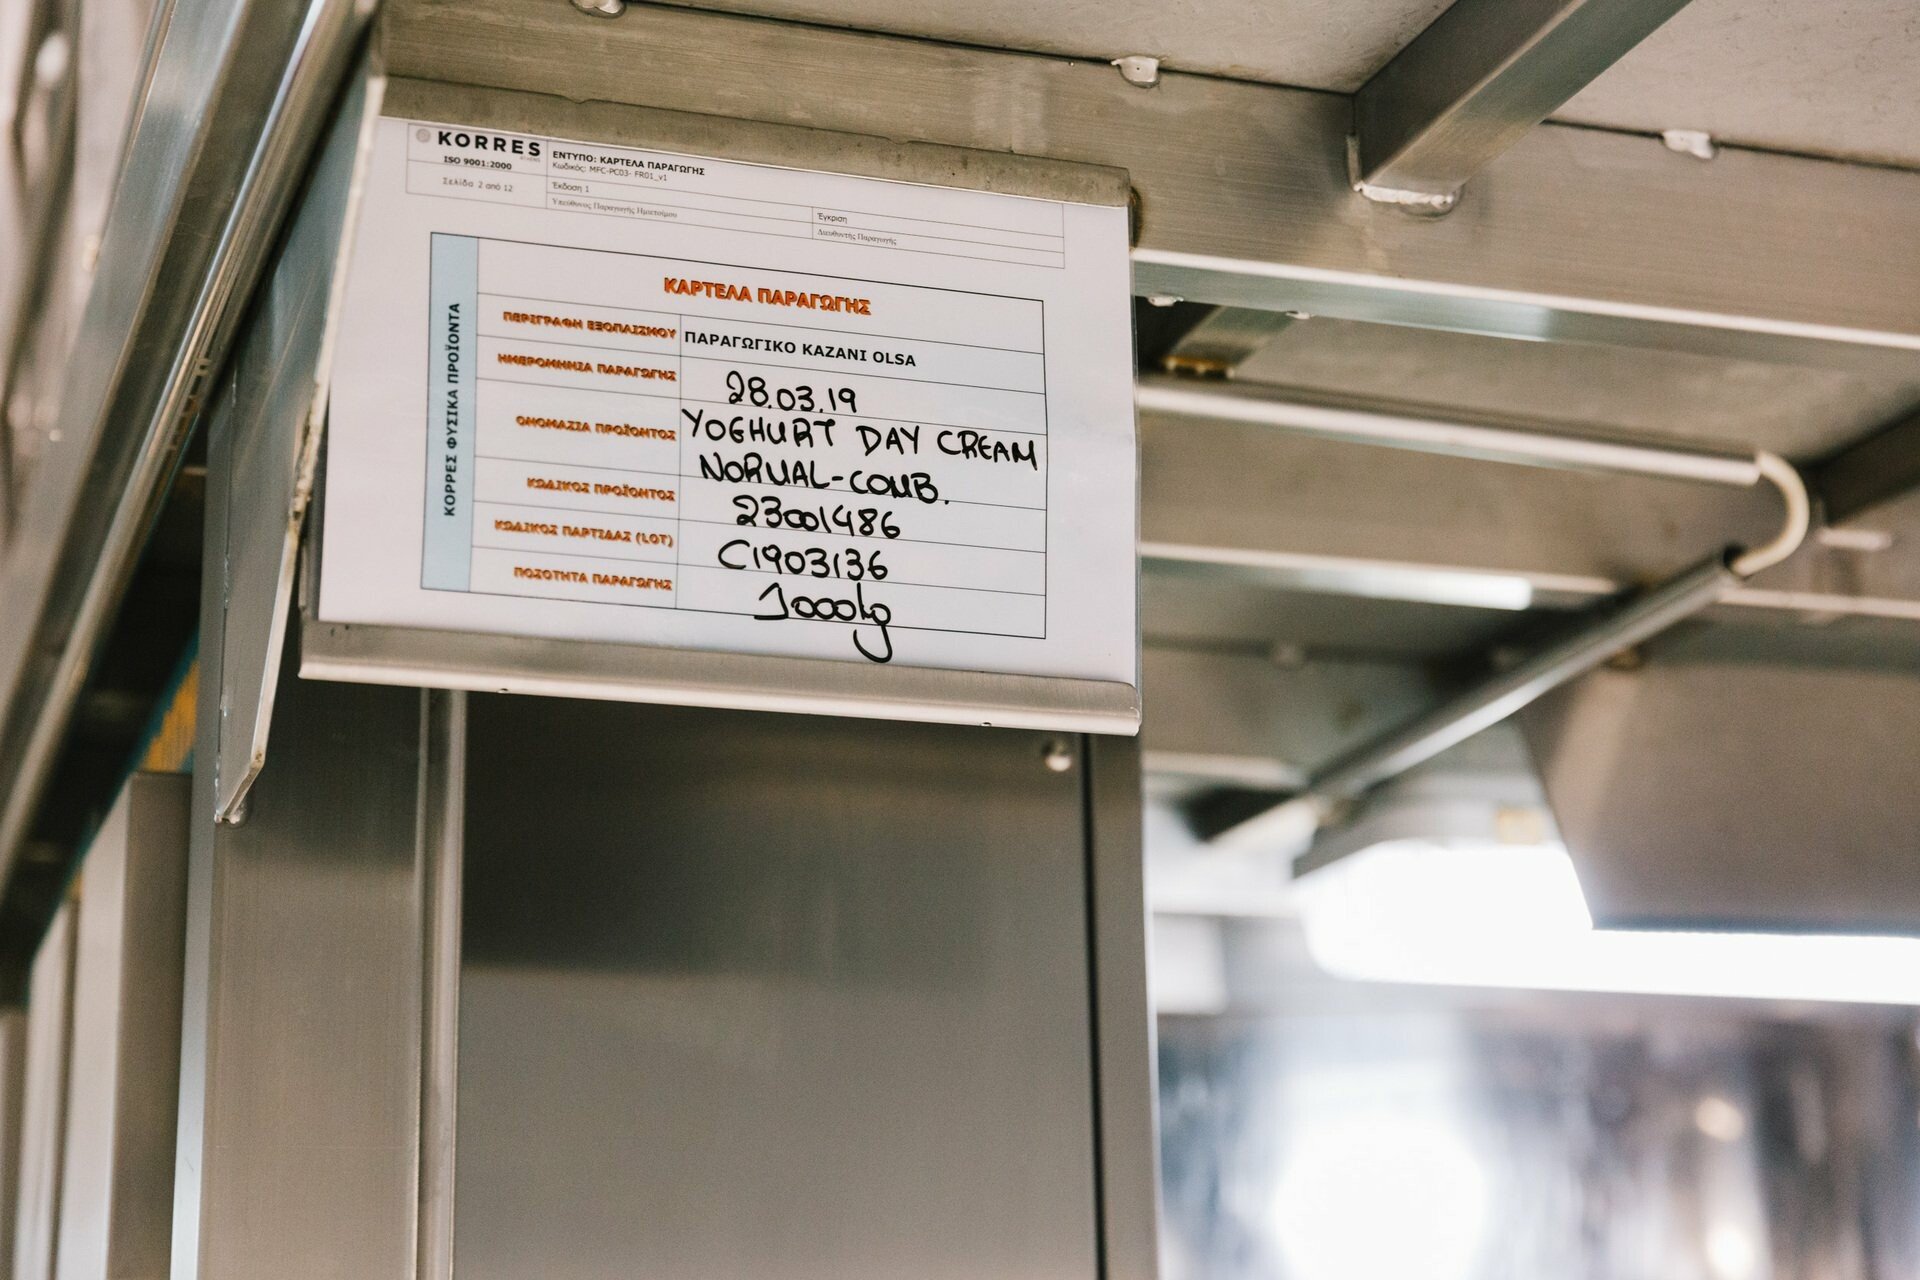 KORRES
ATHENS
ISO 9001:2000
Σελίδα 2 από 12
ΕΝΤΥΠΟ: ΚΑΡΤΕΛΑ ΠΑΡΑΓΩΓΗΣ
Κωδικός: MFC-PC03- FR01_v1
Έκδοση 1
Υπεύθυνος Παραγωγής Ημιετοίμου
Έγκριση
Διευθυντής Παραγωγής
ΚΟΡΡΕΣ ΦΥΣΙΚΑ ΠΡΟΪΟΝΤΑ
ΚΑΡΤΕΛΑ ΠΑΡΑΓΩΓΗΣ
ΠΕΡΙΓΡΑΦΗ ΕΞΟΠΛΙΣΜΟΥ ΠΑΡΑΓΩΓΙΚΟ ΚΑΖΑΝΙ OLSA
ΗΜΕΡΟΜΗΝΙΑ ΠΑΡΑΓΩΓΗΣ 28.03.19
ΟΝΟΜΑΣΙΑ ΠΡΟΪΟΝΤΟΣ YOGHURT DAY CREAM
NORMAL-COMB.
ΚΩΔΙΚΟΣ ΠΡΟΪΟΝΤΟΣ 23001486
ΚΩΔΙΚΟΣ ΠΑΡΤΙΔΑΣ (LOT) C1903136
ΠΟΣΟΤΗΤΑ ΠΑΡΑΓΩΓΗΣ 1000kg